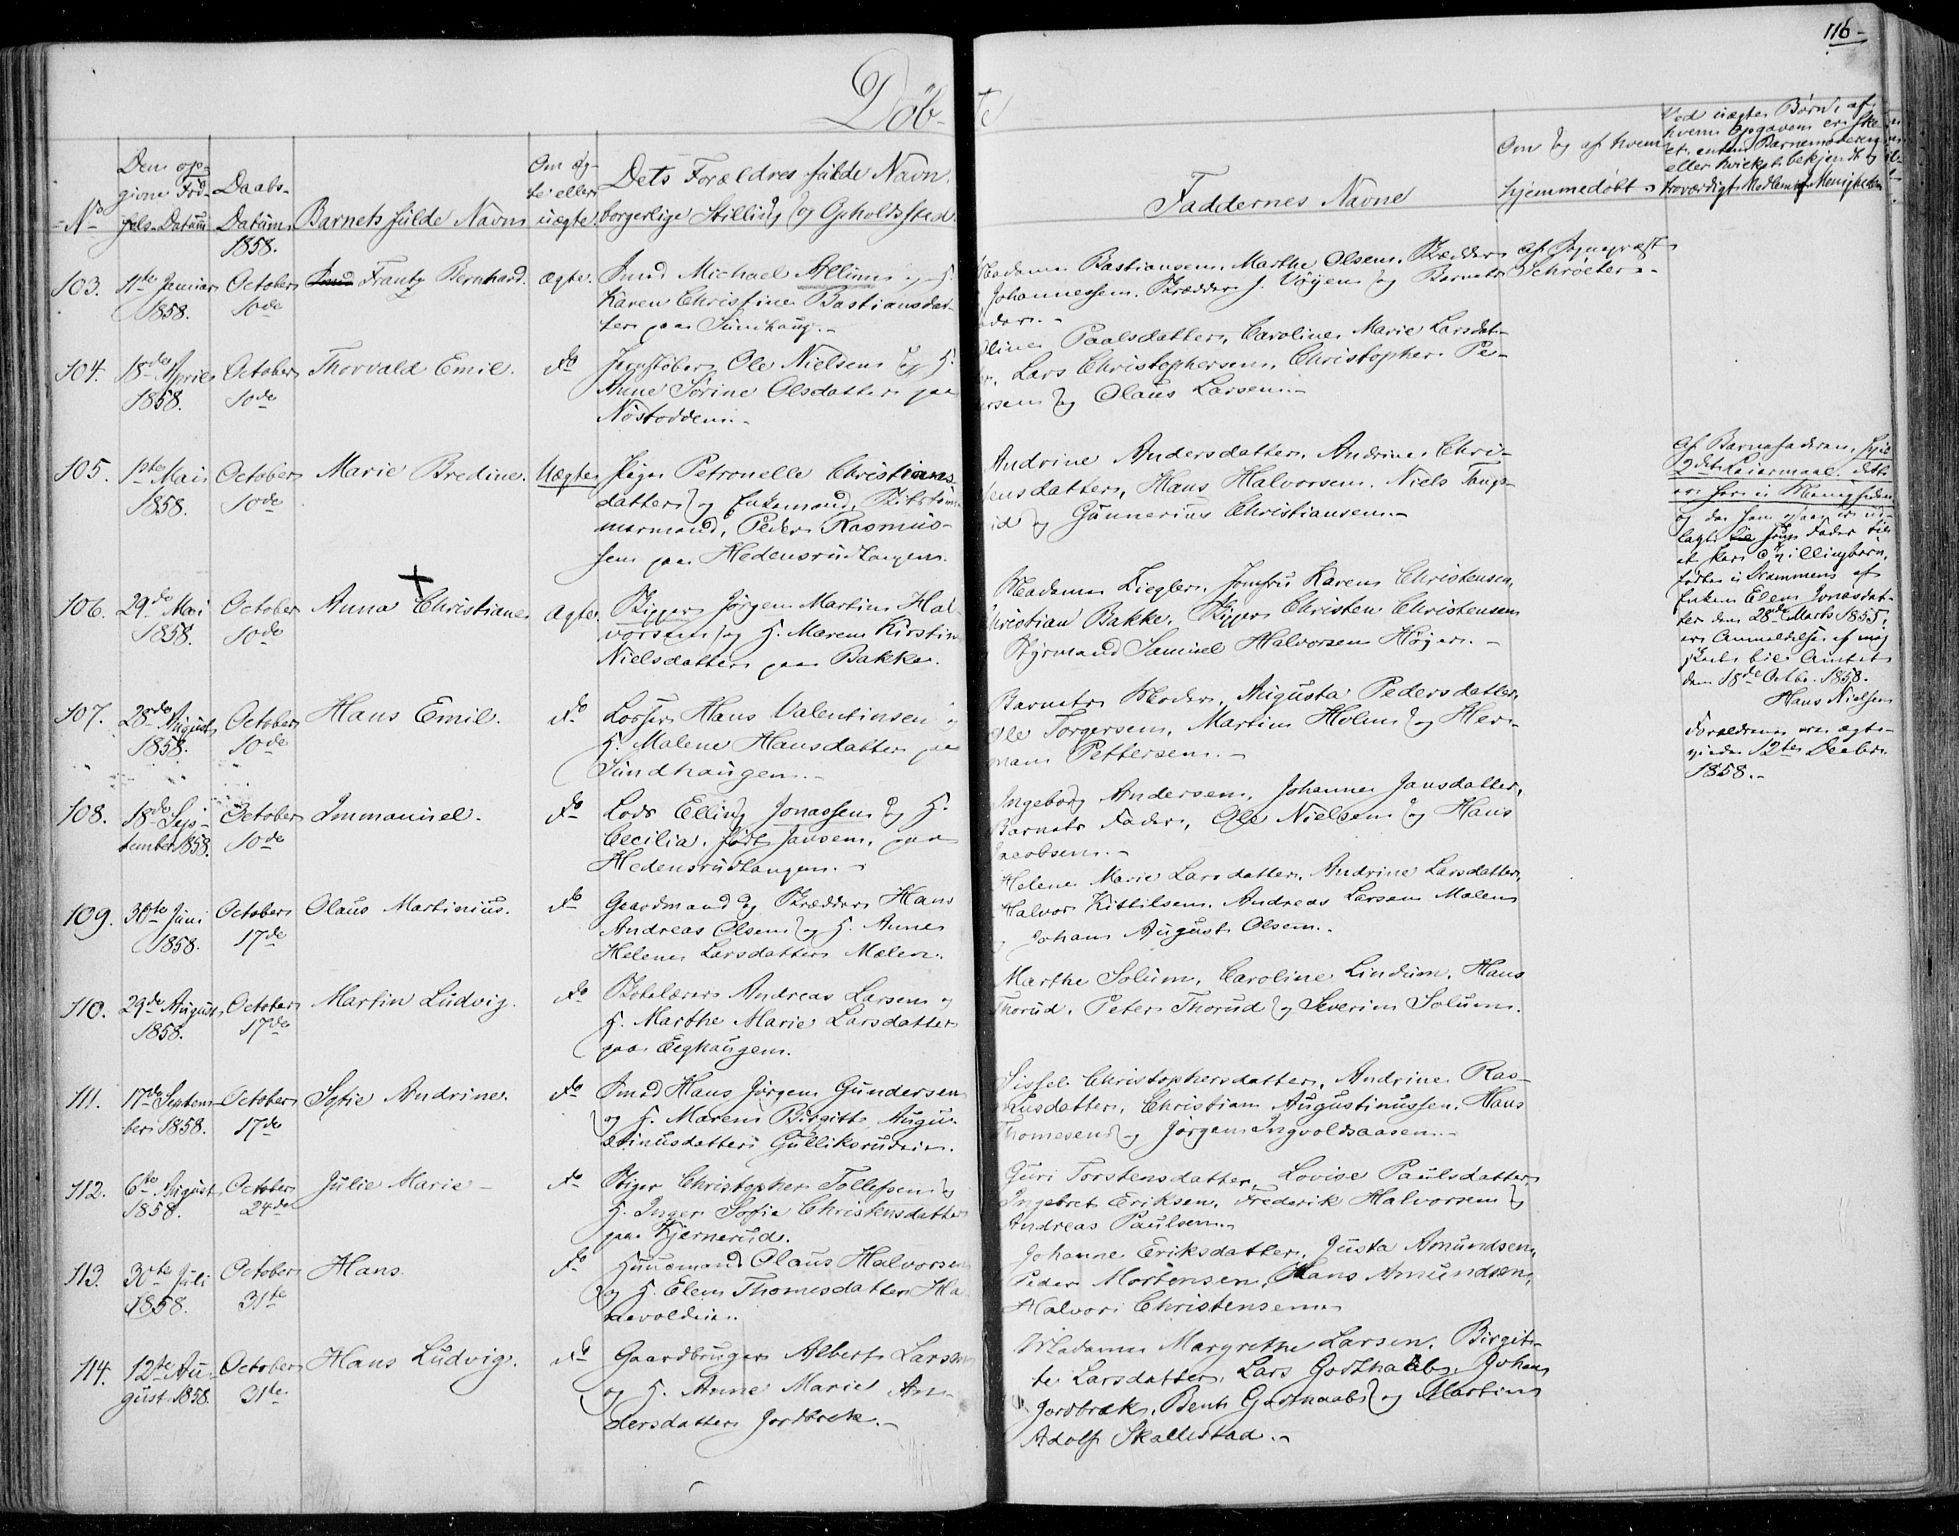 116-
Døb-
te
Den op-
givne Fød-
sels-Datum
Daabs-
Datum
1858.
No
Barnets fulde Navn
Om æg-
te eller
uægte.
Dets Forældres fulde Navn,
borgerlige Stilling og Opholdssted
Faddernes Navne
Om og af hvem
hjemmedøbt
Ved uægte Børn, af
hvem Opgaven er ske
et, enten Barnemoderen
eller bekjendt og
troværdigt Medlem af Menigheden
103. 11te Januar
1858.
October
10de
Frantz Bernhard.
ægte.
Smed Michael
Karen Christine Bastiansdat-
ter paa Sundhaug.
Madame Bastiansen, Marthe Olsen, Skrædder
Johannessen, Skrædder J. Vøyen og Barnets
Fader.
af Sognepræst
Schröeter.
104. 18de April
1858.
October
10de
Thorvald Emil.
do
Ole Nielsen og H.
Anne Sørine Olsdatter paa
Nøstodden.
Paalsdatter, Caroline Marie Larsdat-
ter, Lars Christophersen, Christopher Pe-
dersen og Olaus Larsen.
105. 1ste Mai
1858.
October
10de
Marie Bredine.
Uægte
Pige Petronelle Christians-
datter og Enkemand, Skibstøm-
mermand, Peder Rasmus-
sen paa Hedensrudtangen.
Andrine Andersdatter, Andrine Chri-
stensdatter, Hans Halvorsen, Niels Tangs-
rud og Gunnerius Christiansen.
af Barnefaderen,
2det Leiermaal, dette
er her i Menigheden
og da han ogsaa er ud-
lagt Fader til
et Par Tvillingbørn,
fødte i Drammen af
Enken Elen Jonasdat-
ter den 28de Marts 1855,
er Anmeldelse af mig
skeet til Amtet
den 18de Octbr. 1858.
Hans Nielsen
Forældrene ere ægte-
viede 12te Decbr.
1858.
106. 29de Mai
1858.
October
10de
Anna Christiane
Ægte.
Skipper Jørgen Martin Hal-
vorsen og H. Maren Kirstine
Nielsdatter paa Bakke.
Madame Ziegler, Jomfru Karen Christensen,
Christian Bakke, Skipper Christen Christensen
Styrmand Samuel Halvorsen Høyer.
107. 28de August
1858.
October
10de
Hans Emil.
do
Losser Hans Valentinsen og
H. Malene Hansdatter paa
Sundhaugen.
Barnets Moder, Augusta Pedersdatter
Ole Torgersen, Martin Holm og Her-
man Pettersen.
108. 18de Sep-
tember 1858.
October
10de
Immanuel.
do
Lods Elling Jonassen og H.
Cecilia, født Jansen, paa
Hedensrudtangen.
Ingeborg Andersen, Johanne Jansdatter,
Barnets Fader, Ole Nielsen og Hans
Jacobsen.
109. 30te Juni
1858.
October
17de
Olaus Martinius.
do
Gaardmand og Skrædder Hans
Andreas Olsen og H. Anne
Helene Larsdatter Mælen.
Helene Marie Larsdatter, Andrine Larsdatter,
Halvor Kittilsen, Andreas Larsen Malen
og Johan August Olsen.
110. 29de August
1858.
October
17de
Martin Ludvig.
do
Skolelærer Andreas Larsen og
H. Marthe Marie Larsdatter
paa Eeghaugen.
Marthe Solum, Caroline Lindum, Hans
Thorud, Peter Thorud og Severin Solum.
111. 17de Septem-
ber 1858.
October
17de
Sofie Andrine.
do
Smed Hans Jørgen Gundersen
og H. Maren Birgitte Augu-
stinusdatter Gulliksrudeie.
Sissel Christophersdatter, Andrine Ras-
musdatter, Christian Augustinussen, Hans
Thomesen og Jørgen Ingvoldsaasen.
112. 6te August
1858.
October
24de
Julie Marie
do
Christopher Tollefsen og
H. Inger Sofie Christensdatter
paa Kjernerud.
Guri Torstensdatter, Lovise Paulsdatter,
Ingebret Eriksen, Frederik Halvorsen og
Andreas Paulsen.
113. 30te Juli
1858.
October
31te
Hans.
do
Huusmand Olaus Halvorsen
og H. Elen Thomesdatter Ha-
Johanne Eriksdatter, Gusta Amundsen,
Peder Mortensen, Hans Amundsen,
Halvor Christensen
114. 12te Au-
gust 1858.
October
31te
Hans Ludvig.
do
Gaardbruger Albert Larsen
og H. Anne Marie An-
dersdatter Jordbræk.
Madame Margrethe Larsen, Birgit-
te Larsdatter, Lars Godthaab, Johan
Jordbræk, Bent Godthaab og Martin
Adolf Skallestad.